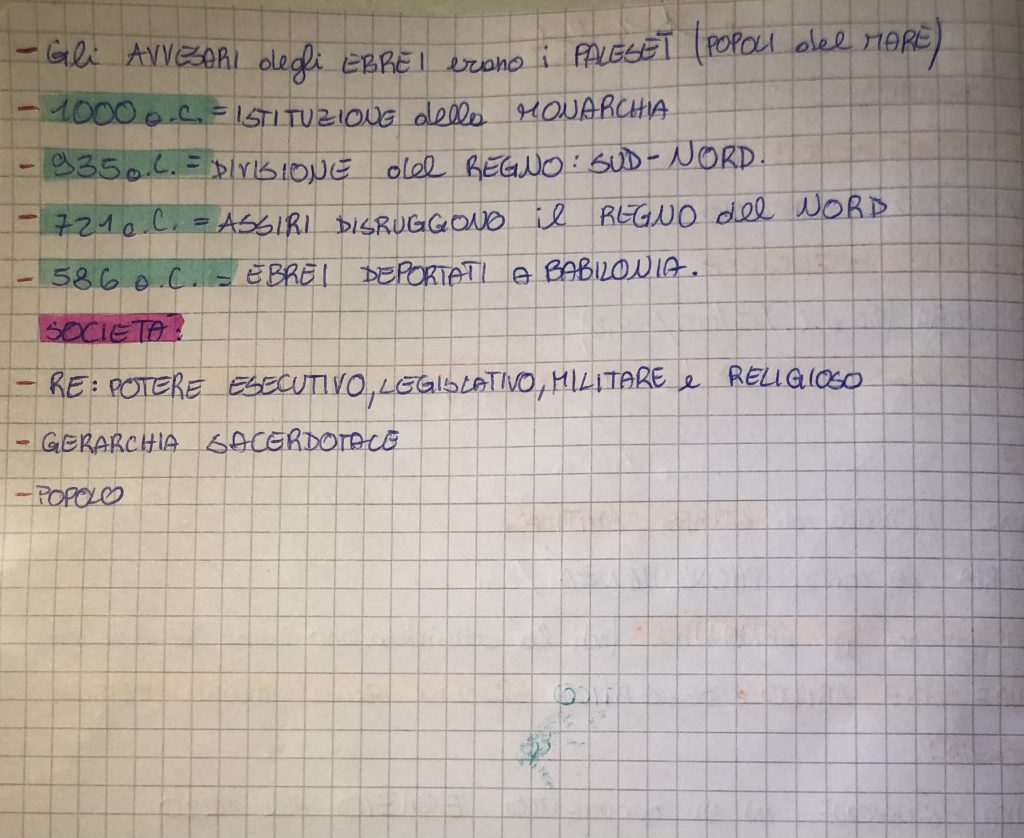 - Gli AVVESARI degli EBREI erano i PALESET (POPOLI del MARE)
- 1000 a.C. = ISTITUZIONE della MONARCHIA
- 935 a.C. = DIVISIONE del REGNO: SUD-NORD.
- 721 a.C. = ASSIRI DISRUGGONO il REGNO del NORD
- 586 a.C. = EBREI DEPORTATI A BABILONIA.
SOCIETÀ:
- RE: POTERE ESECUTIVO, LEGISLATIVO, MILITARE e RELIGIOSO
- GERARCHIA SACERDOTALE
- POPOLO